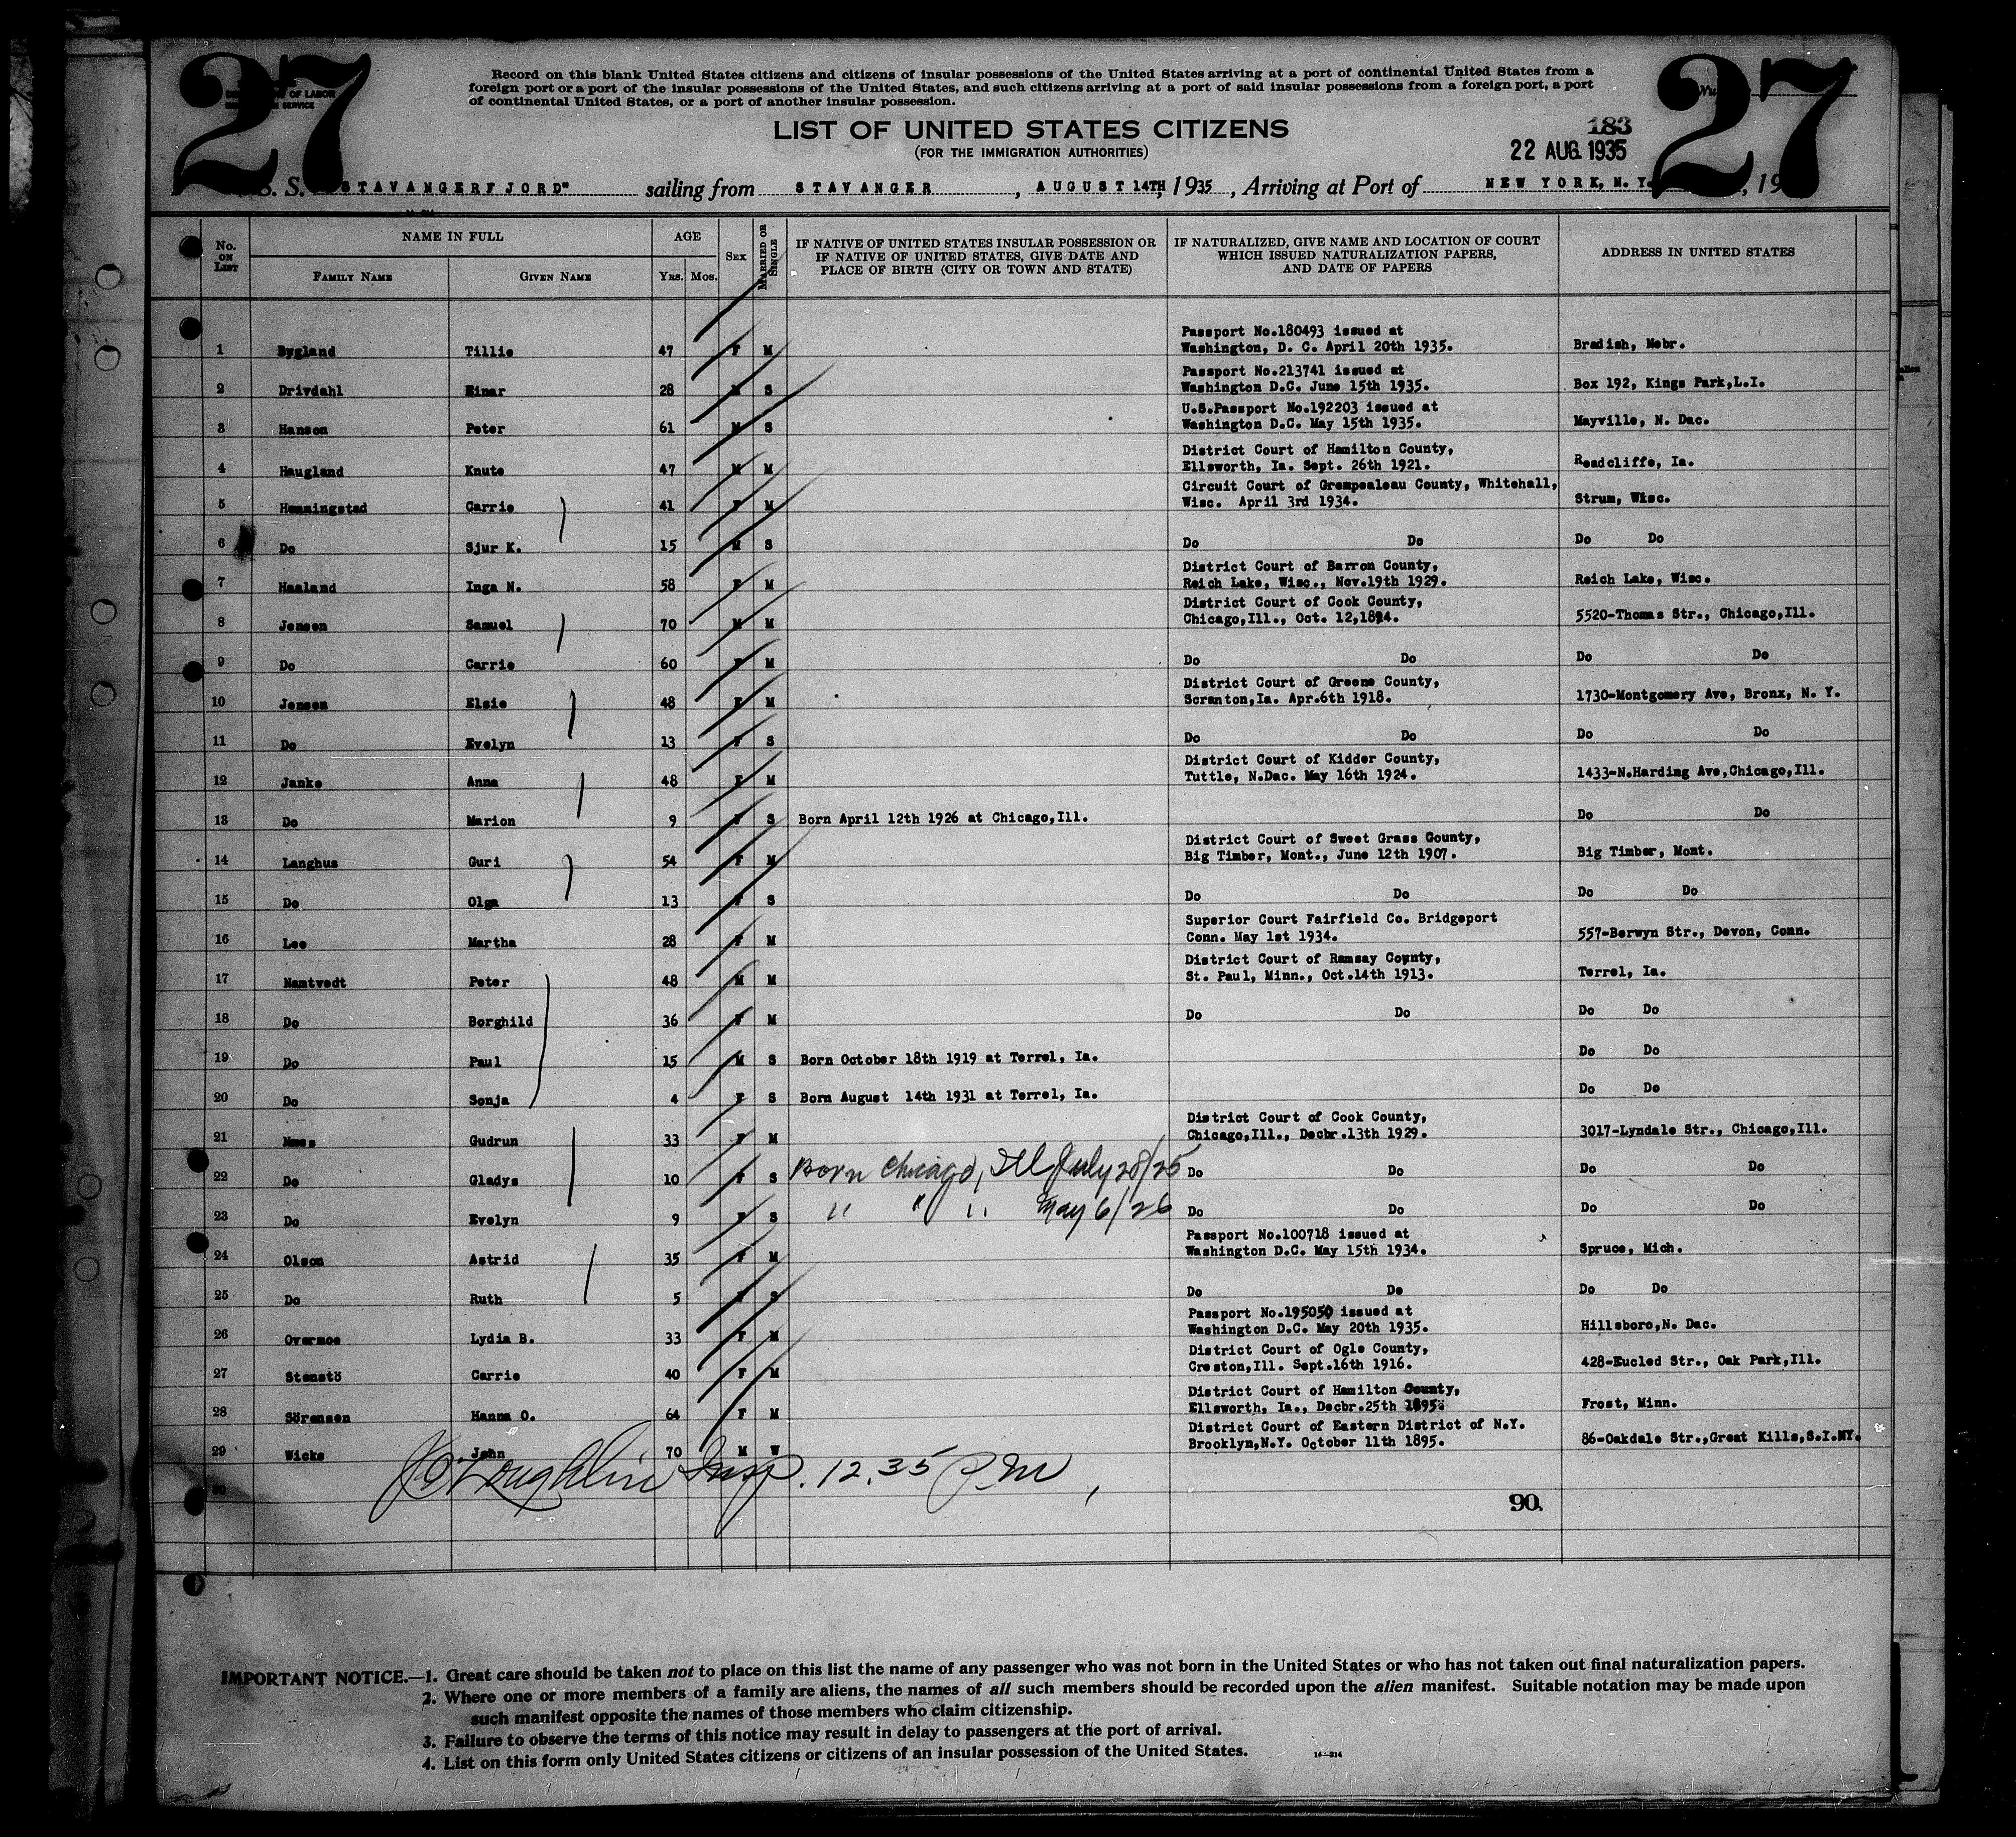 27
27
OF LABOR
SERVICE
Record on this blank United States citizens and citizens of insular possessions of the United States arriving at a port of continental United States from a
foreign port or a port of the insular possessions of the United States, and such citizens arriving at a port of said insular possessions from a foreign port, a port
of continental United States, or a port of another insular possession.
LIST OF UNITED STATES CITIZENS
(FOR THE IMMIGRATION AUTHORITIES)
183
22 AUG. 1935
S. S. STAVANGERFJORD" sailing from STAVANGER, AUGUST 14TH, 1935, Arriving at Port of NEW YORK, N. Y. , 19
No. ON LIST
NAME IN FULL
FAMILY NAME
GIVEN NAME
AGE
YRS.
MOS.
SEX
MARRIED OR SINGLE
IF NATIVE OF UNITED STATES INSULAR POSSESSION OR
IF NATIVE OF UNITED STATES, GIVE DATE AND
PLACE OF BIRTH (CITY OR TOWN AND STATE)
IF NATURALIZED, GIVE NAME AND LOCATION OF COURT
WHICH ISSUED NATURALIZATION PAPERS,
AND DATE OF PAPERS
ADDRESS IN UNITED STATES
1 Bygland Tillie 47 F M Passport No.180493 issued at
Washington, D. C. April 20th 1935. Bradish, Nebr.
2 Drivdahl Einar 28 M S Passport No.213741 issued at
Washington D.C. June 15th 1935. Box 192, Kings Park,L.I.
3 Hanson Peter 61 M S U.S.Passport No.192203 issued at
Washington D.C. May 15th 1935. Mayville, N. Dac.
4 Haugland Knute 47 M M District Court of Hamilton County,
Ellsworth, Ia. Sept. 26th 1921. Readcliffe, Ia.
5 Hemmingstad Carrie 41 F M Circuit Court of Grempealeau County, Whitehall,
Wisc. April 3rd 1934. Strum, Wisc.
6 Do Sjur K. 15 M S Do Do Do Do
7 Haaland Inga N. 58 F M District Court of Barron County,
Reich Lake, Wisc., Nov.19th 1929. Reich Lake, Wisc.
8 Jensen Samuel 70 M M District Court of Cook County,
Chicago,Ill., Oct. 12,1894. 5520-Thomas Str., Chicago,Ill.
9 Do Carrie 60 F M Do Do Do Do
10 Jensen Elsie 48 F M District Court of Greene County,
Scranton,Ia. Apr.6th 1918. 1730-Montgomery Ave, Bronx, N. Y.
11 Do Evelyn 13 F S Do Do Do Do
12 Janke Anna 48 F M District Court of Kidder County,
Tuttle, N.Dac. May 16th 1924. 1433-N.Harding Ave,Chicago,Ill.
13 Do Marion 9 F S Born April 12th 1926 at Chicago,Ill. Do Do
14 Langhus Guri 54 F M District Court of Sweet Grass County,
Big Timber, Mont., June 12th 1907. Big Timber, Mont.
15 Do Olga 13 F S Do Do Do Do
16 Lee Martha 28 F M Superior Court Fairfield Co. Bridgeport
Conn. May 1st 1934. 557-Berwyn Str., Devon, Conn.
17 Namtvedt Peter 48 M M District Court of Ramsay County,
St. Paul, Minn., Oct.14th 1913. Terrel, Ia.
18 Do Borghild 36 F M Do Do Do Do
19 Do Paul 15 M S Born October 18th 1919 at Terrel, Ia. Do Do
20 Do Sonja 4 F S Born August 14th 1931 at Terrel, Ia. Do Do
21 Gudrun 33 F M District Court of Cook County,
Chicago,Ill., Decbr.13th 1929. 3017-Lyndale Str., Chicago,Ill.
22 Do Gladys 10 F S Born Chicago, Ill July 28/25 Do Do Do Do
23 Do Evelyn 9 F S " " " May 6/26 Do Do Do Do
24 Olson Astrid 35 F M Passport No.100718 issued at
Washington D.C. May 15th 1934. Spruce, Mich.
25 Do Ruth 5 F S Do Do Do Do
26 Overmoe Lydia B. 33 F M Passport No.195050 issued at
Washington D.C. May 20th 1935. Hillsboro,N. Dac.
27 Stenstö Carrie 40 F M District Court of Ogle County,
Creston,Ill. Sept.16th 1916. 428-Eucled Str., Oak Park,Ill.
28 Sörensen Hanna O. 64 F M District Court of Hamilton County,
Ellsworth, Ia., Decbr.25th 1895. Frost, Minn.
29 Wicks John 70 M W District Court of Eastern District of N.Y.
Brooklyn,N.Y. October 11th 1895. 86-Oakdale Str.,Great Kills,S.I.NY.
J O'Loughlin Insp. 12.35 PM
30
90.
IMPORTANT NOTICE.—1. Great care should be taken not to place on this list the name of any passenger who was not born in the United States or who has not taken out final naturalization papers.
2. Where one or more members of a family are aliens, the names of all such members should be recorded upon the alien manifest. Suitable notation may be made upon
such manifest opposite the names of those members who claim citizenship.
3. Failure to observe the terms of this notice may result in delay to passengers at the port of arrival.
4. List on this form only United States citizens or citizens of an insular possession of the United States.
14—314